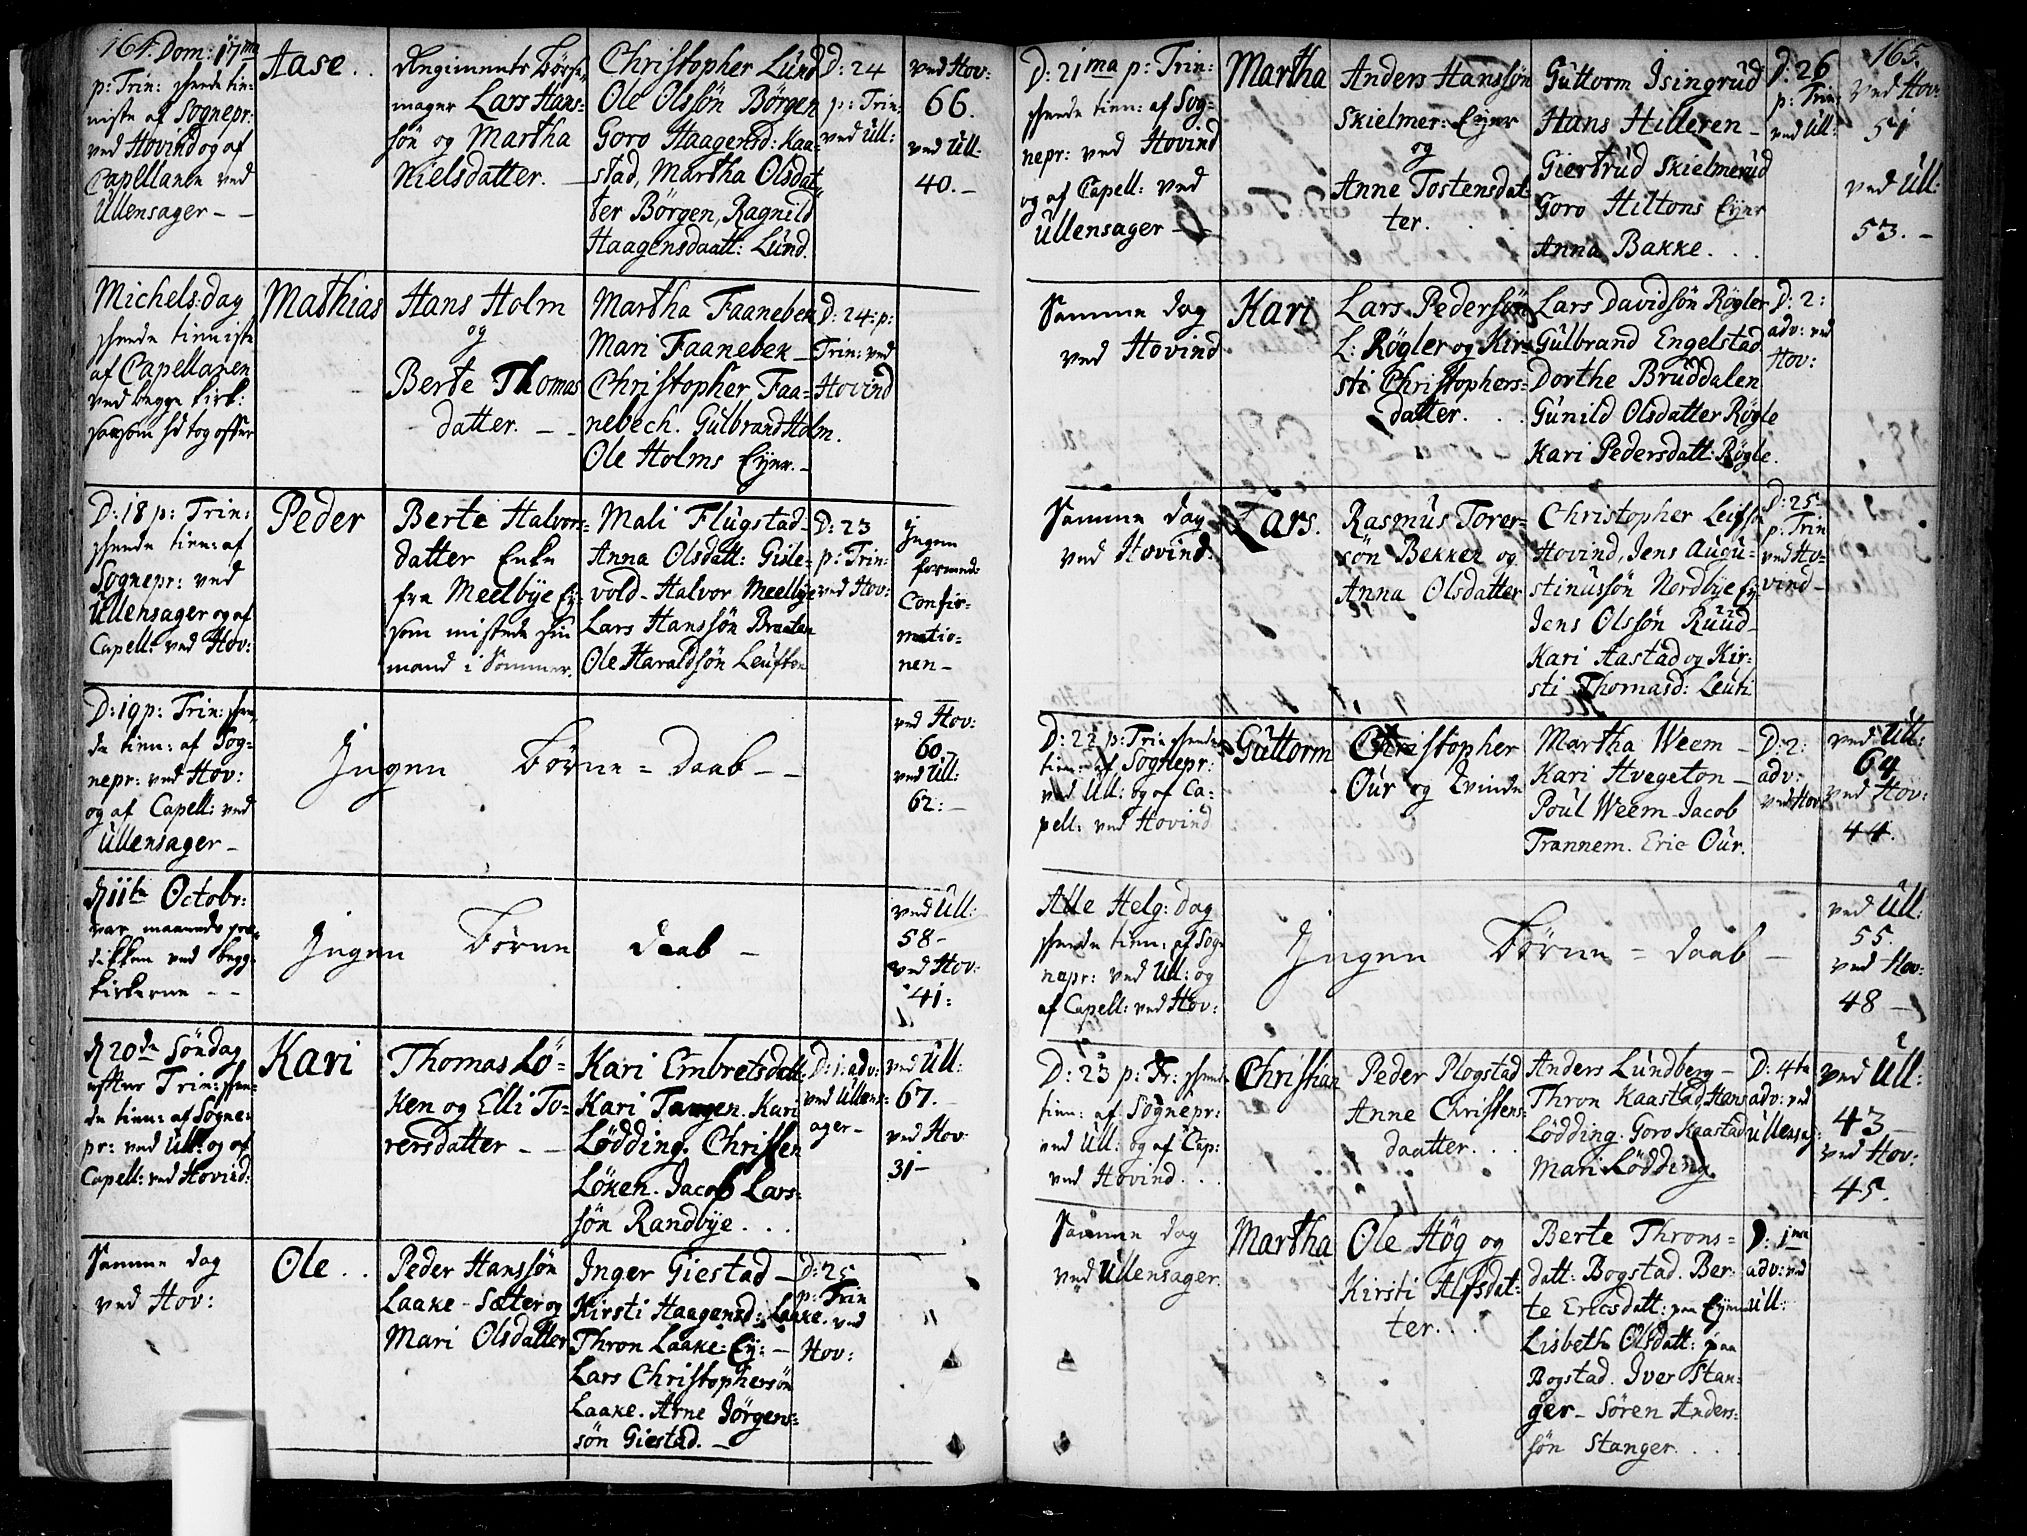 164. Dom: 17ma
p: Trin: tien:
niste af Sognepr:
ved Hovind og af
Capellanen ved
Ullensager - -
Aase . .
Regiments Børse
mager Lars Hans-
søn og Martha
Nielsdatter. -
Christopher Lund
Ole Olssøn Børgen
Goro Haagensd: Kaa-
stad, Martha Olsdat
ter Børgen, Ragnild
Haagensdaatt: Lund.
D: 24
p: Trin:
ved Ull:
ved Hov:
66.
ved Ull:
40. -
Michels: dag
tieniste
af Capellanen
ved begge Kirk:
saasom tog offer
Mathias
Hans Holm
og
Berte Thomas
datter. - -
Martha Faanebek
Mari Faanebek -
Christopher Faa-
nebech. Gulbrand Holm.
Ole Holms Eyer. -
D: 24: p:
Trin: ved
Hovind
D: 18 p: Trin:
tien: af
Sognepr: ved
Ullensager og af
Capell: ved Hov:
Peder
Berte Halvors-
datter Enke
fra Meelbÿe Ey-
som mistede sin
mand i Sommer.
Mali Flugstad -
Anna Olsdatt: Gisle-
vold - Halvor Meelbÿe
Lars Hanssøn Braaten
Ole Haraldsøn
D: 23
p: Trin:
ved Hov:
Ingen
formed:
Confir-
matio-
nen -
D: 19 p: Trin:
de tien: af Sog-
nepr: ved Hov:
og af Capell: ved
Ullensager -
Ingen Børne = daab - -
ved Hov:
60 -
ved Ull:
62: -
d 11te Octobr:
var maaneds præ-
diken ved begge
Kirkerne - -
Ingen Børne daab -
ved Ull:
58 -
ved Hov:
41:
d 20de Søndag
efter Trin:
de tien: af Sogne-
pr: ved Ull: og af
Capell: ved Hovind:
Kari
Thomas Lø-
ken og Elli To-
rersdatter - -
Kari Embretsdatt
Kari Tangen. Kari
Lødding. Christen
Løken. Jacob Lars-
søn Randbÿe . . .
D: 1: adv:
ved Ullens-
ager -
ved Ull:
67. -
ved Hov:
31 -
Samme dag
ved Hov:
Ole . .
Peder Hanssøn
Laake - Sæter og
Mari Olsdatter
Inger Giestad -
Kirsti Haagensd: Laake.
Thron Laake: Ey: -
Lars Christophersøn
Laake. Arne Jørgens-
søn Giestad. -
D: 25
p: Trin
ved
Hov:
165.
D: 21ma p: Trin:
tien: af Sog-
nepr: ved Hovind
og af Capell: ved
Ullensager -
Martha
Anders Hanssøn
Skielmer: Eyer
og
Anne Tostensdat-
ter.
Guttorm Isingrud
Hans Hilleren -
Giertrud Skielmerud
Goro Hiltons Eyer
Anna Bakke . . .
D: 26
p: Trin:
ved Ull:
ved Hov:
51
ved Ull:
53. -
Samme dag
ved Hovind
Kari
Lars Pedersøn
L: Røgler og Kir-
sti Christophers-
datter. . .
Lars Davidsøn Røgler
Gulbrand Engelstad
Dorthe Bruddalen
Gunild Olsdatter Røgle
Kari Pedersdatt: Røgle.
D: 2:
adv: ved
Hov:
Samme dag
ved Hovind:
Lars.
Rasmus Torer-
søn Bekken og
Anna Olsdatter
Christopher
Hovind, Jens Augu-
stinussøn Nordbÿe Ey
Jens Olssøn Ruud -
Kari Aastad og Kir-
sti Thomasd:
D: 25
p: Trin
ved Ho-
vind -
D: 22 p: Trin:
tien: af Sognepr:
ved Ull: og af Ca-
pell: ved Hovind
Guttorm
Christopher
Our og Qvinde
Martha Weem -
Kari Hvegeton -
Poul Weem - Jacob
Trannem. Eric Our.
D: 2:
adv:
ved Hov:
ved Ull:
64
ved Hov:
44.
Alle Helg: dag
tien: af Sog-
nepr: ved Ull: og
af Capell: ved Hov:
Ingen Børne = daab -
ved Ull:
55.
ved Hov:
48 -
D: 23 p: Tr:
tien: af Sognepr:
ved Ull: og af Cap:
ved Hovind . . .
Christian
Peder Plogstad
Anne Christens-
daatter . . .
Anders Lundberg -
Thron Kaastad, Hans
Lødding. Goro Kaastad
Mari Lødding.
D: 4te
adv: ved
Ullensag:
ved Ull:
43 -
ved Hov:
45.
Samme dag
ved Ullensager.
Martha
Ole Høg og
Kirsti Alfsdat-
ter. . .
Berte Throns-
datt: Bogstad. Ber-
te Ericsdatt: paa Eyer
Lisbeth Olsdatt: paa
Bogstad. Iver Stan-
ger - Søren Anders-
søn Stanger . . .
D: 1ma
adv: ved
Ull: